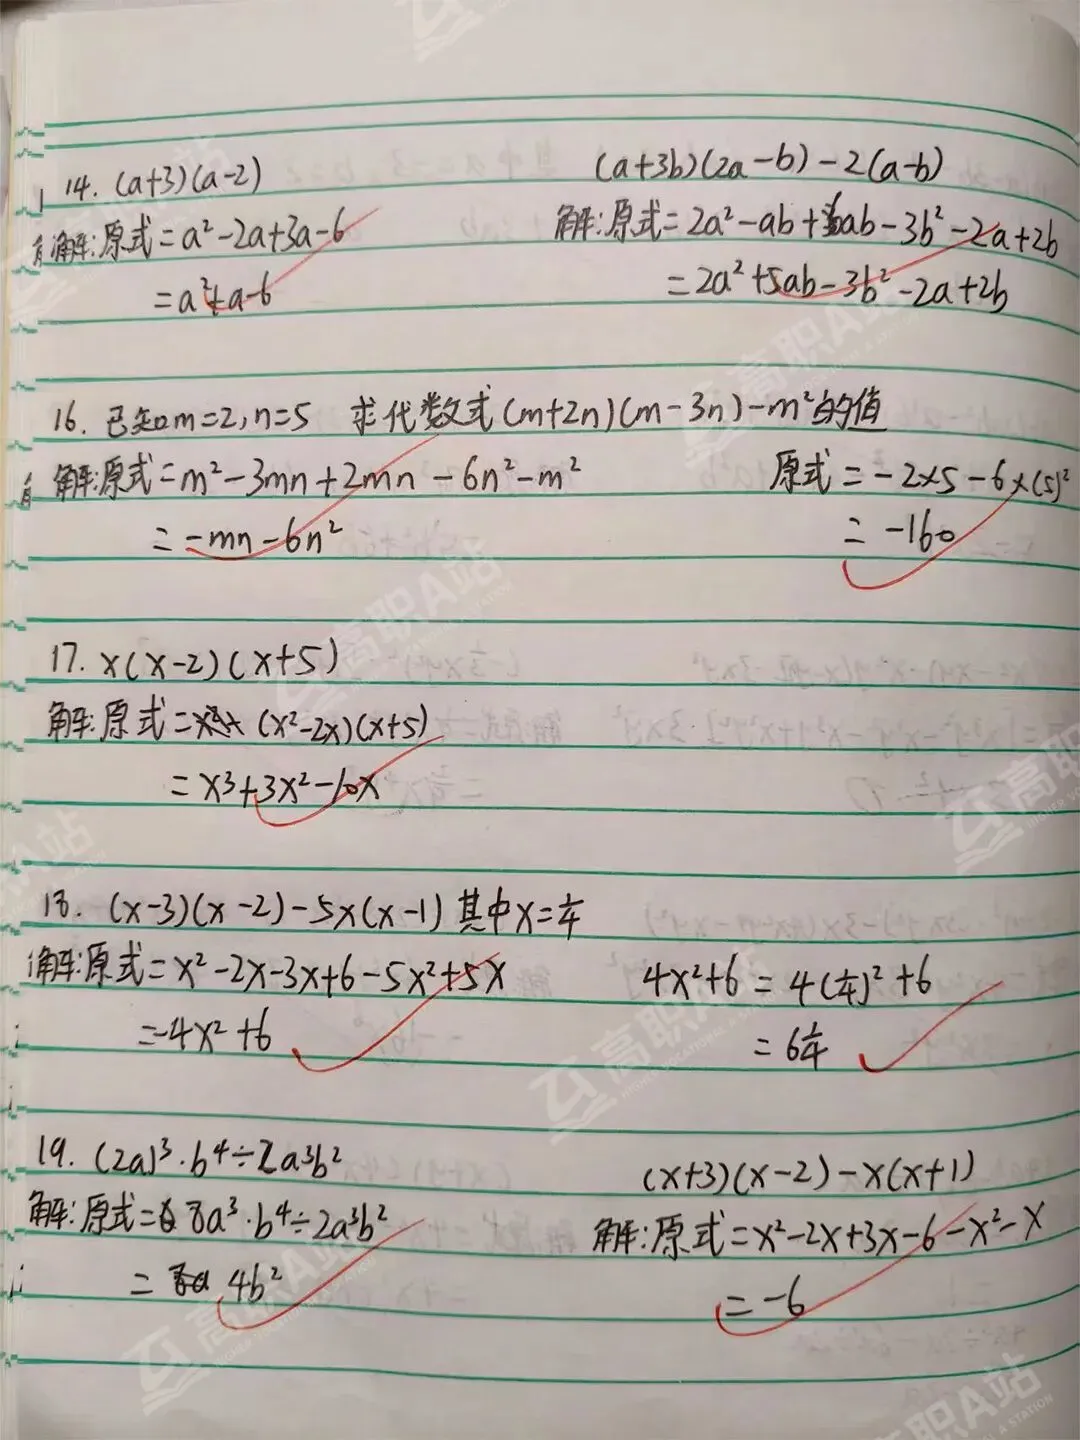 14. (a+3)(a-2)
解:原式=a²-2a+3a-6
=a²+a-6
(a+3b)(2a-b)-2(a-b)
解:原式=2a²-ab+6ab-3b²-2a+2b
=2a²+5ab-3b²-2a+2b
16. 已知m=2,n=5 求代数式(m+2n)(m-3n)-m²的值
解:原式=m²-3mn+2mn-6n²-m²
=-mn-6n²
原式=-2×5-6×(5)²
=-160
17. x(x-2)(x+5)
解:原式=(x²-2x)(x+5)
=x³+3x²-10x
18. (x-3)(x-2)-5x(x-1)其中x=1/4
解:原式=x²-2x-3x+6-5x²+5x
=-4x²+6
4x²+6=4(1/4)²+6
=6 1/4
19. (2a)³·b⁴÷2a³b²
解:原式=8a³·b⁴÷2a³b²
=4b²
(x+3)(x-2)-x(x+1)
解:原式=x²-2x+3x-6-x²-x
=-6
高职A站